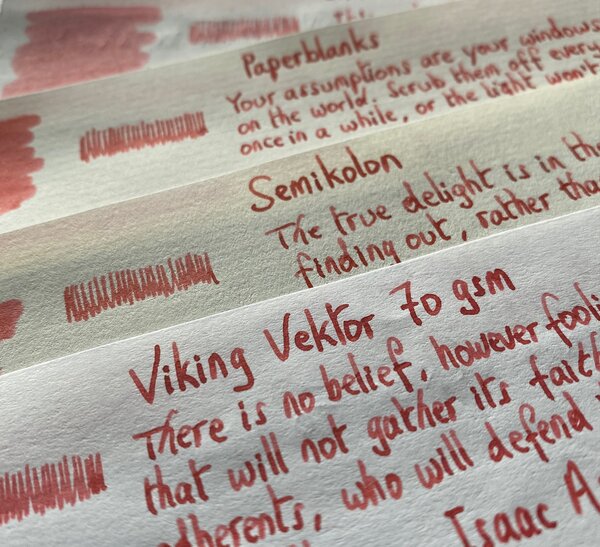 Paperblanks
Your assumptions are your windows
on the world. Scrub them off every
once in a while, or the light won't
Semikolon
The true delight is in the
finding out, rather tha
Viking Vektor 70 gsm
There is no belief, however fooli
that will not gather its faith
adherents, who will defend
Isaac As